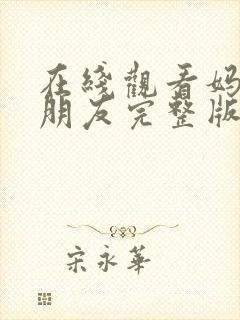 在綫觀看妈
朋友完整版
宋永華